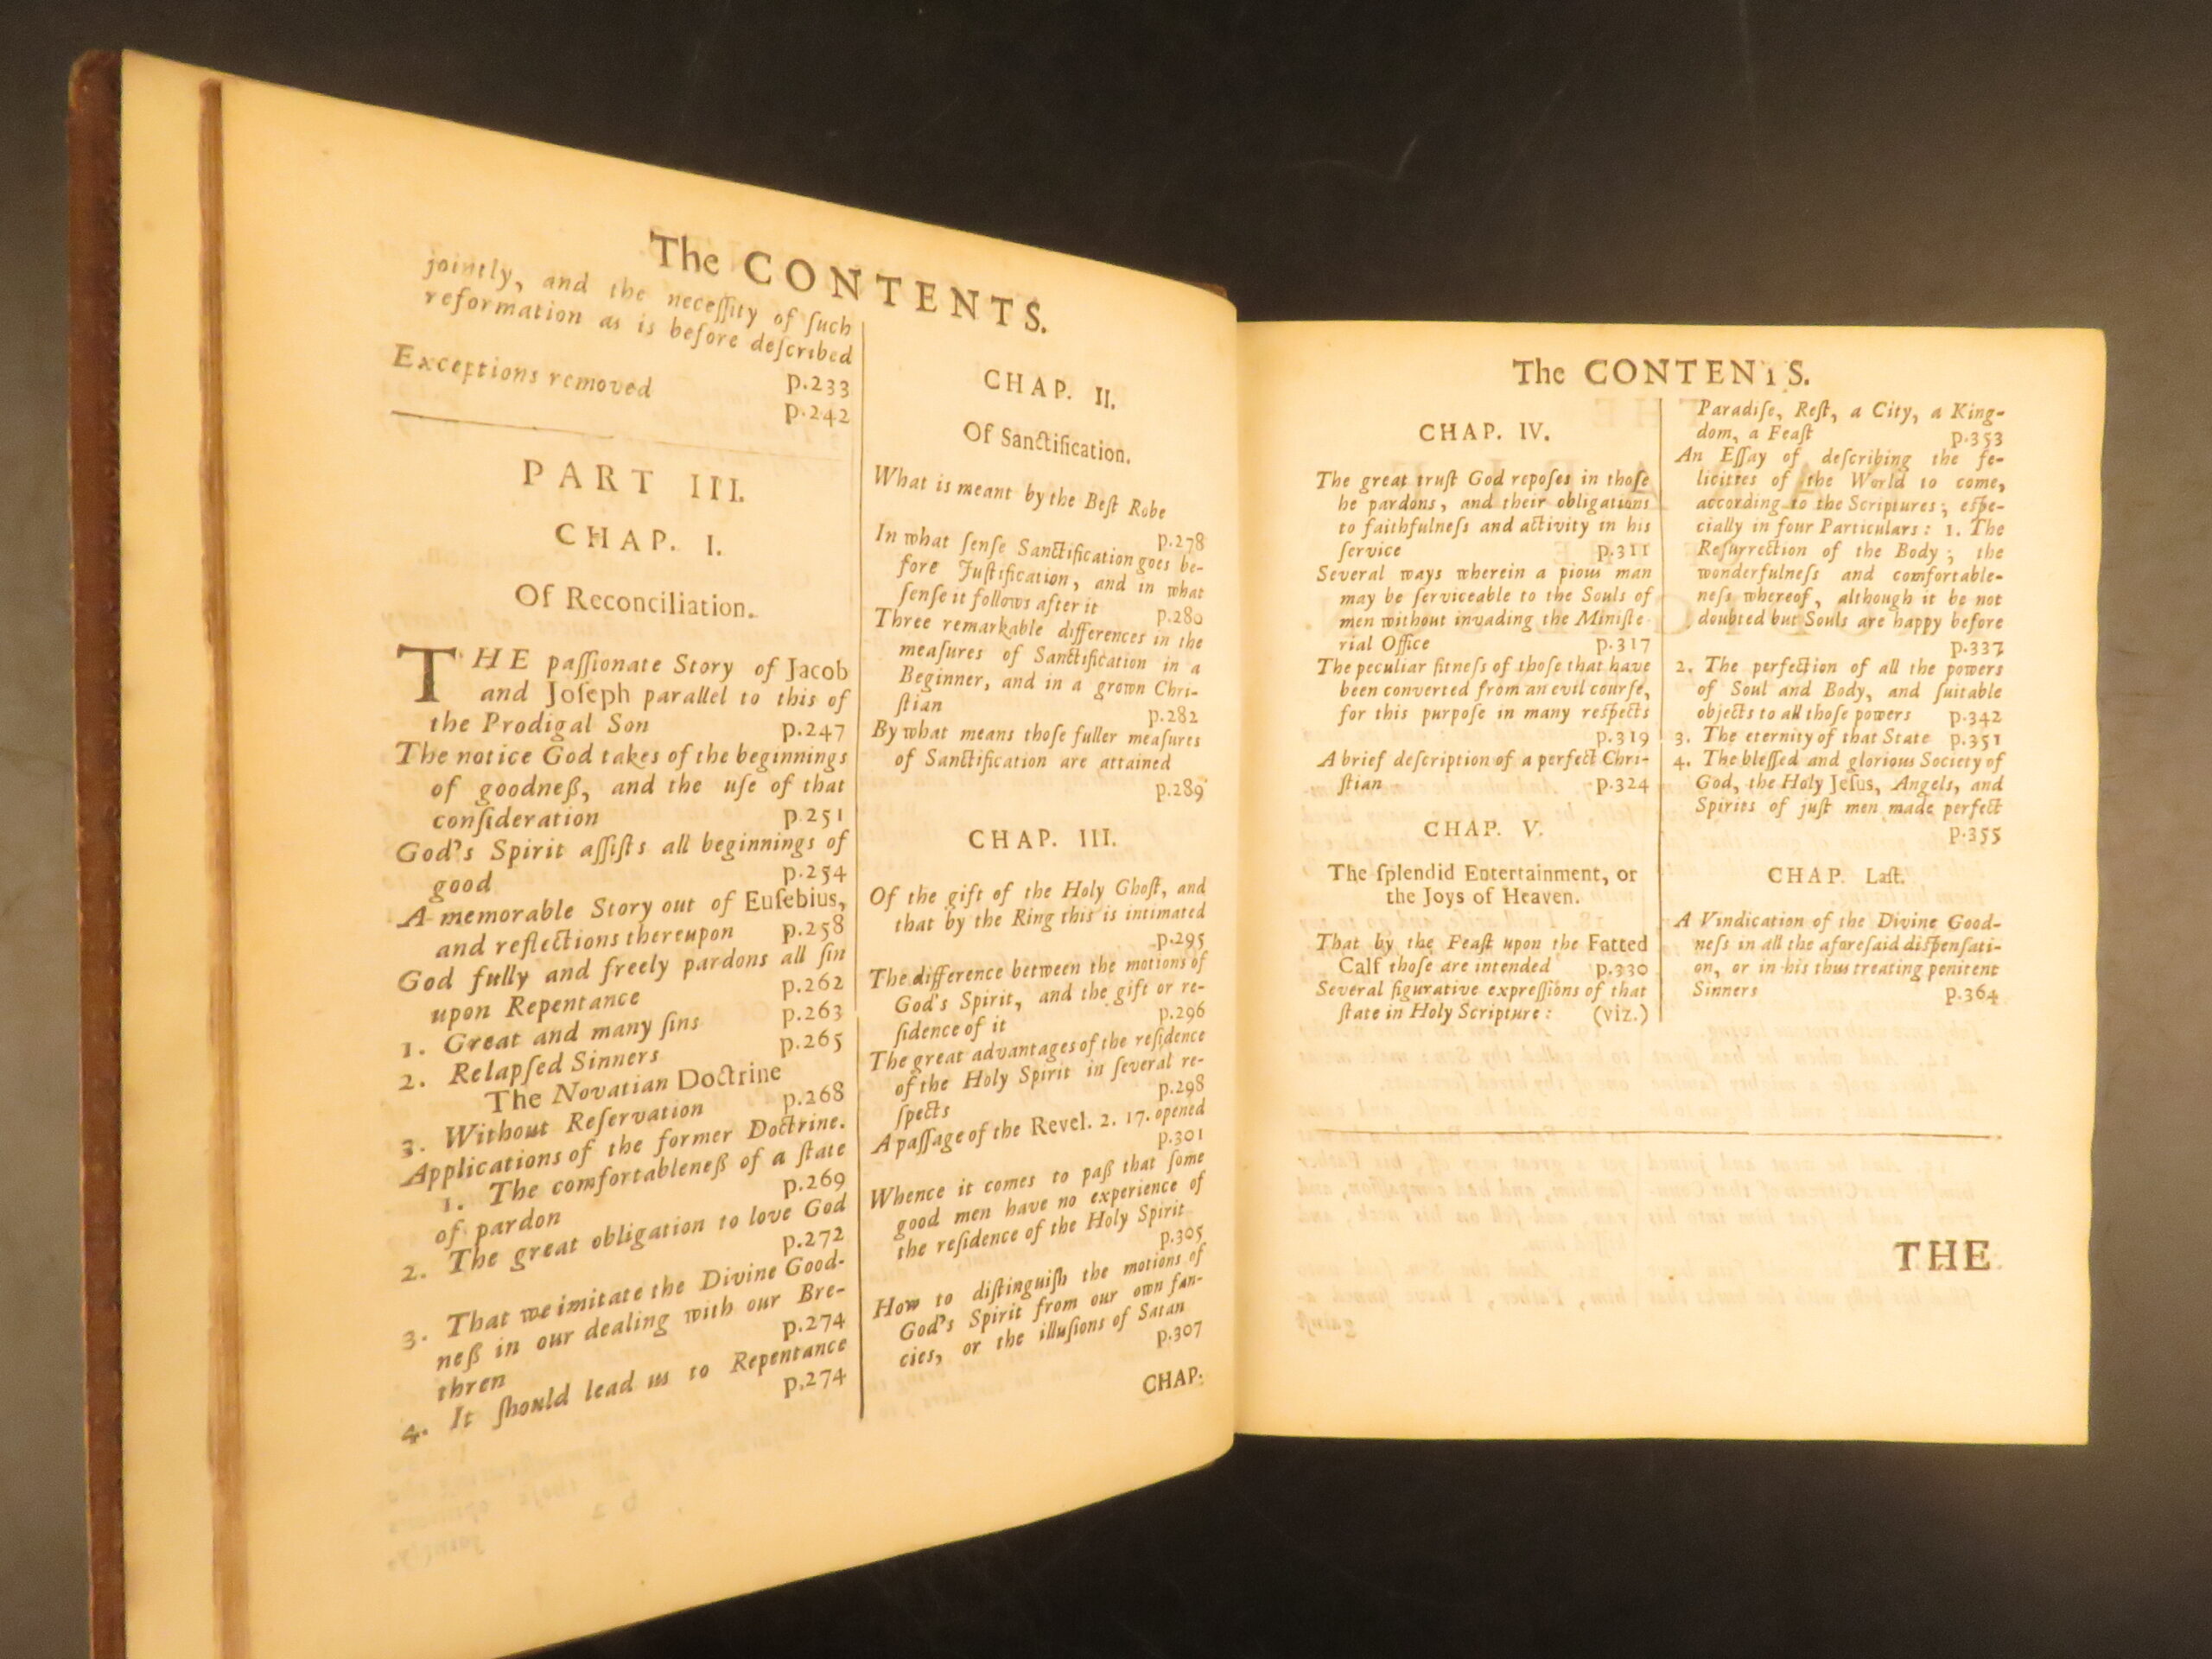 The CONTENTS.
jointly, and the neceſſity of ſuch
reformation as is before deſcribed
p.233
Exceptions removed
p.242
PART III.
CHAP. I.
Of Reconciliation.
THE paſſionate Story of Jacob
and Joſeph parallel to this of
the Prodigal Son p.247
The notice God takes of the beginnings
of goodneß, and the uſe of that
conſideration p.251
God's Spirit aſſiſts all beginnings of
good p.254
A memorable Story out of Euſebius,
and reflections thereupon p.258
God fully and freely pardons all ſin
upon Repentance p.262
1. Great and many ſins p.263
2. Relapſed Sinners p.265
The Novatian Doctrine
3. Without Reſervation p.268
Applications of the former Doctrine.
1. The comfortableneß of a ſtate
of pardon p.269
2. The great obligation to love God
p.272
3. That we imitate the Divine Good-
neß in our dealing with our Bre-
thren p.274
4. It ſhould lead us to Repentance
p.274
CHAP. II.
Of Sanctification.
What is meant by the Beſt Robe
p.278
In what ſenſe Sanctification goes be-
fore Juſtification, and in what
ſenſe it follows after it p.280
Three remarkable differences in the
meaſures of Sanctification in a
Beginner, and in a grown Chri-
ſtian p.282
By what means thoſe fuller meaſures
of Sanctification are attained
p.289
CHAP. III.
Of the gift of the Holy Ghoſt, and
that by the Ring this is intimated
p.295
The difference between the motions of
God's Spirit, and the gift or re-
ſidence of it p.296
The great advantages of the reſidence
of the Holy Spirit in ſeveral re-
ſpects p.298
A paſſage of the Revel. 2. 17. opened
p.301
Whence it comes to paß that ſome
good men have no experience of
the reſidence of the Holy Spirit
p.305
How to diſtinguiſh the motions of
God's Spirit from our own fan-
cies, or the illuſions of Satan
p.307
CHAP.
The CONTENTS.
CHAP. IV.
The great truſt God repoſes in thoſe
he pardons, and their obligations
to faithfulneſs and activity in his
ſervice p.311
Several ways wherein a pious man
may be ſerviceable to the Souls of
men without invading the Miniſte-
rial Office p.317
The peculiar fitneſs of thoſe that have
been converted from an evil courſe,
for this purpoſe in many reſpects
p.319
A brief deſcription of a perfect Chri-
ſtian p.324
CHAP. V.
The ſplendid Entertainment, or
the Joys of Heaven.
That by the Feaſt upon the Fatted
Calf thoſe are intended p.330
Several figurative expreſſions of that
ſtate in Holy Scripture: (viz.)
Paradiſe, Reſt, a City, a King-
dom, a Feaſt p.353
An Eſſay of deſcribing the fe-
licities of the World to come,
according to the Scriptures; eſpe-
cially in four Particulars: 1. The
Reſurrection of the Body; the
wonderfulneſs and comfortable-
neſs whereof, although it be not
doubted but Souls are happy before
p.337
2. The perfection of all the powers
of Soul and Body, and ſuitable
objects to all thoſe powers p.342
3. The eternity of that State p.351
4. The bleſſed and glorious Society of
God, the Holy Jeſus, Angels, and
Spirits of juſt men made perfect
p.355
CHAP. Laſt.
A Vindication of the Divine Good-
neſs in all the aforeſaid diſpenſati-
on, or in his thus treating penitent
Sinners p.364
THE